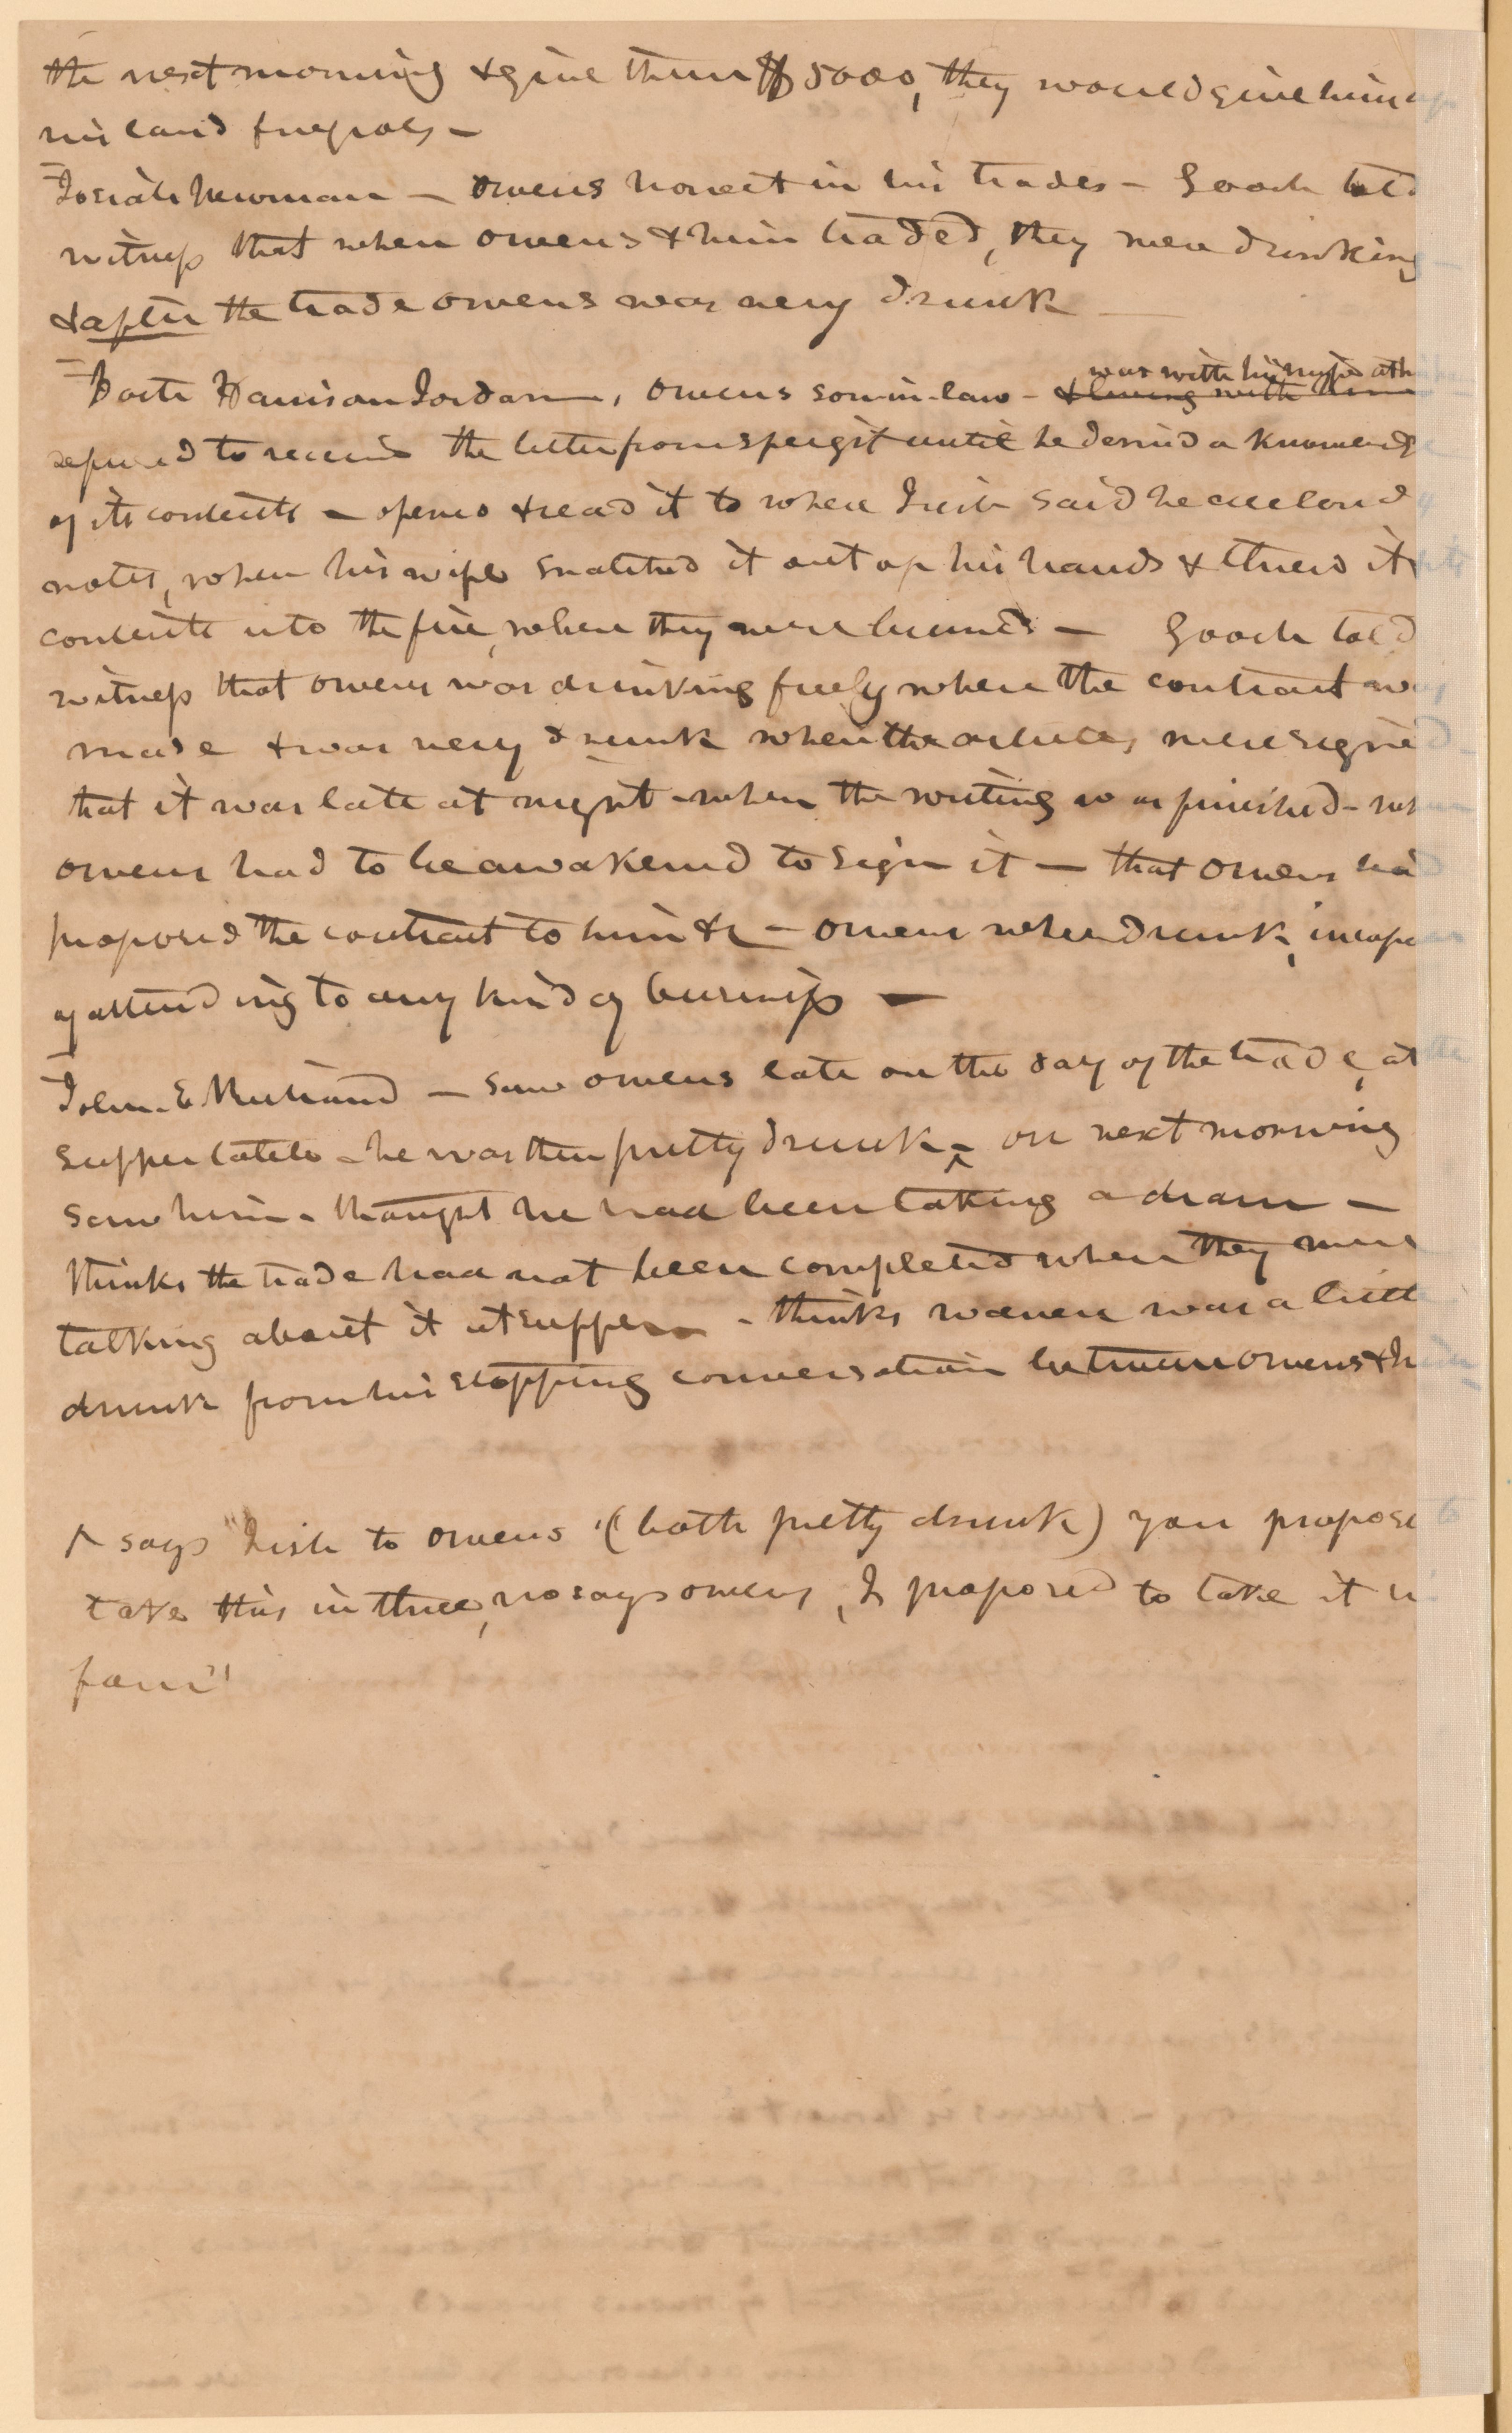 the next morning & give them $5000, they would give him up
his land &
Josiah Newman — Owens honest in his trades — Gooch told
witness that when Owens & him traded, they were drinking
& after the trade Owens was very drunk —
Harrison Jordan, Owens son-in-law — was with his wife at
& living with him
refused to receive the letter from until he denied a knowledge
of its contents — opened & read it to when Irish said he enclosed
notes, when his wife snatched it out of his hands & threw it &
contents into the fire, where they were burned — Gooch told
witness that Owens was drinking freely when the contract was
made & was very drunk when the articles were signed
that it was late at night when the writing was finished — when
Owens had to be awakened to sign it — that Owens had
proposed the contract to him &c — Owens when drunk, incapa
of attending to any kind of business —
John E — saw Owens late on the day of the trade, at the
supper table — he was then pretty drunk — ^ on next morning
saw him — thought he had been taking a dram —
thinks the trade had not been completed when they were
talking about it at supper — thinks was a little
drunk from his stopping conversation between Owens &
^ says "Irish to Owens "(both pretty drunk) you proposed to
take this in three, no says Owens, I proposed to take it in
four"